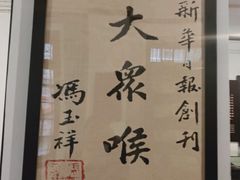 新華日報創刊
大眾喉
馮玉祥